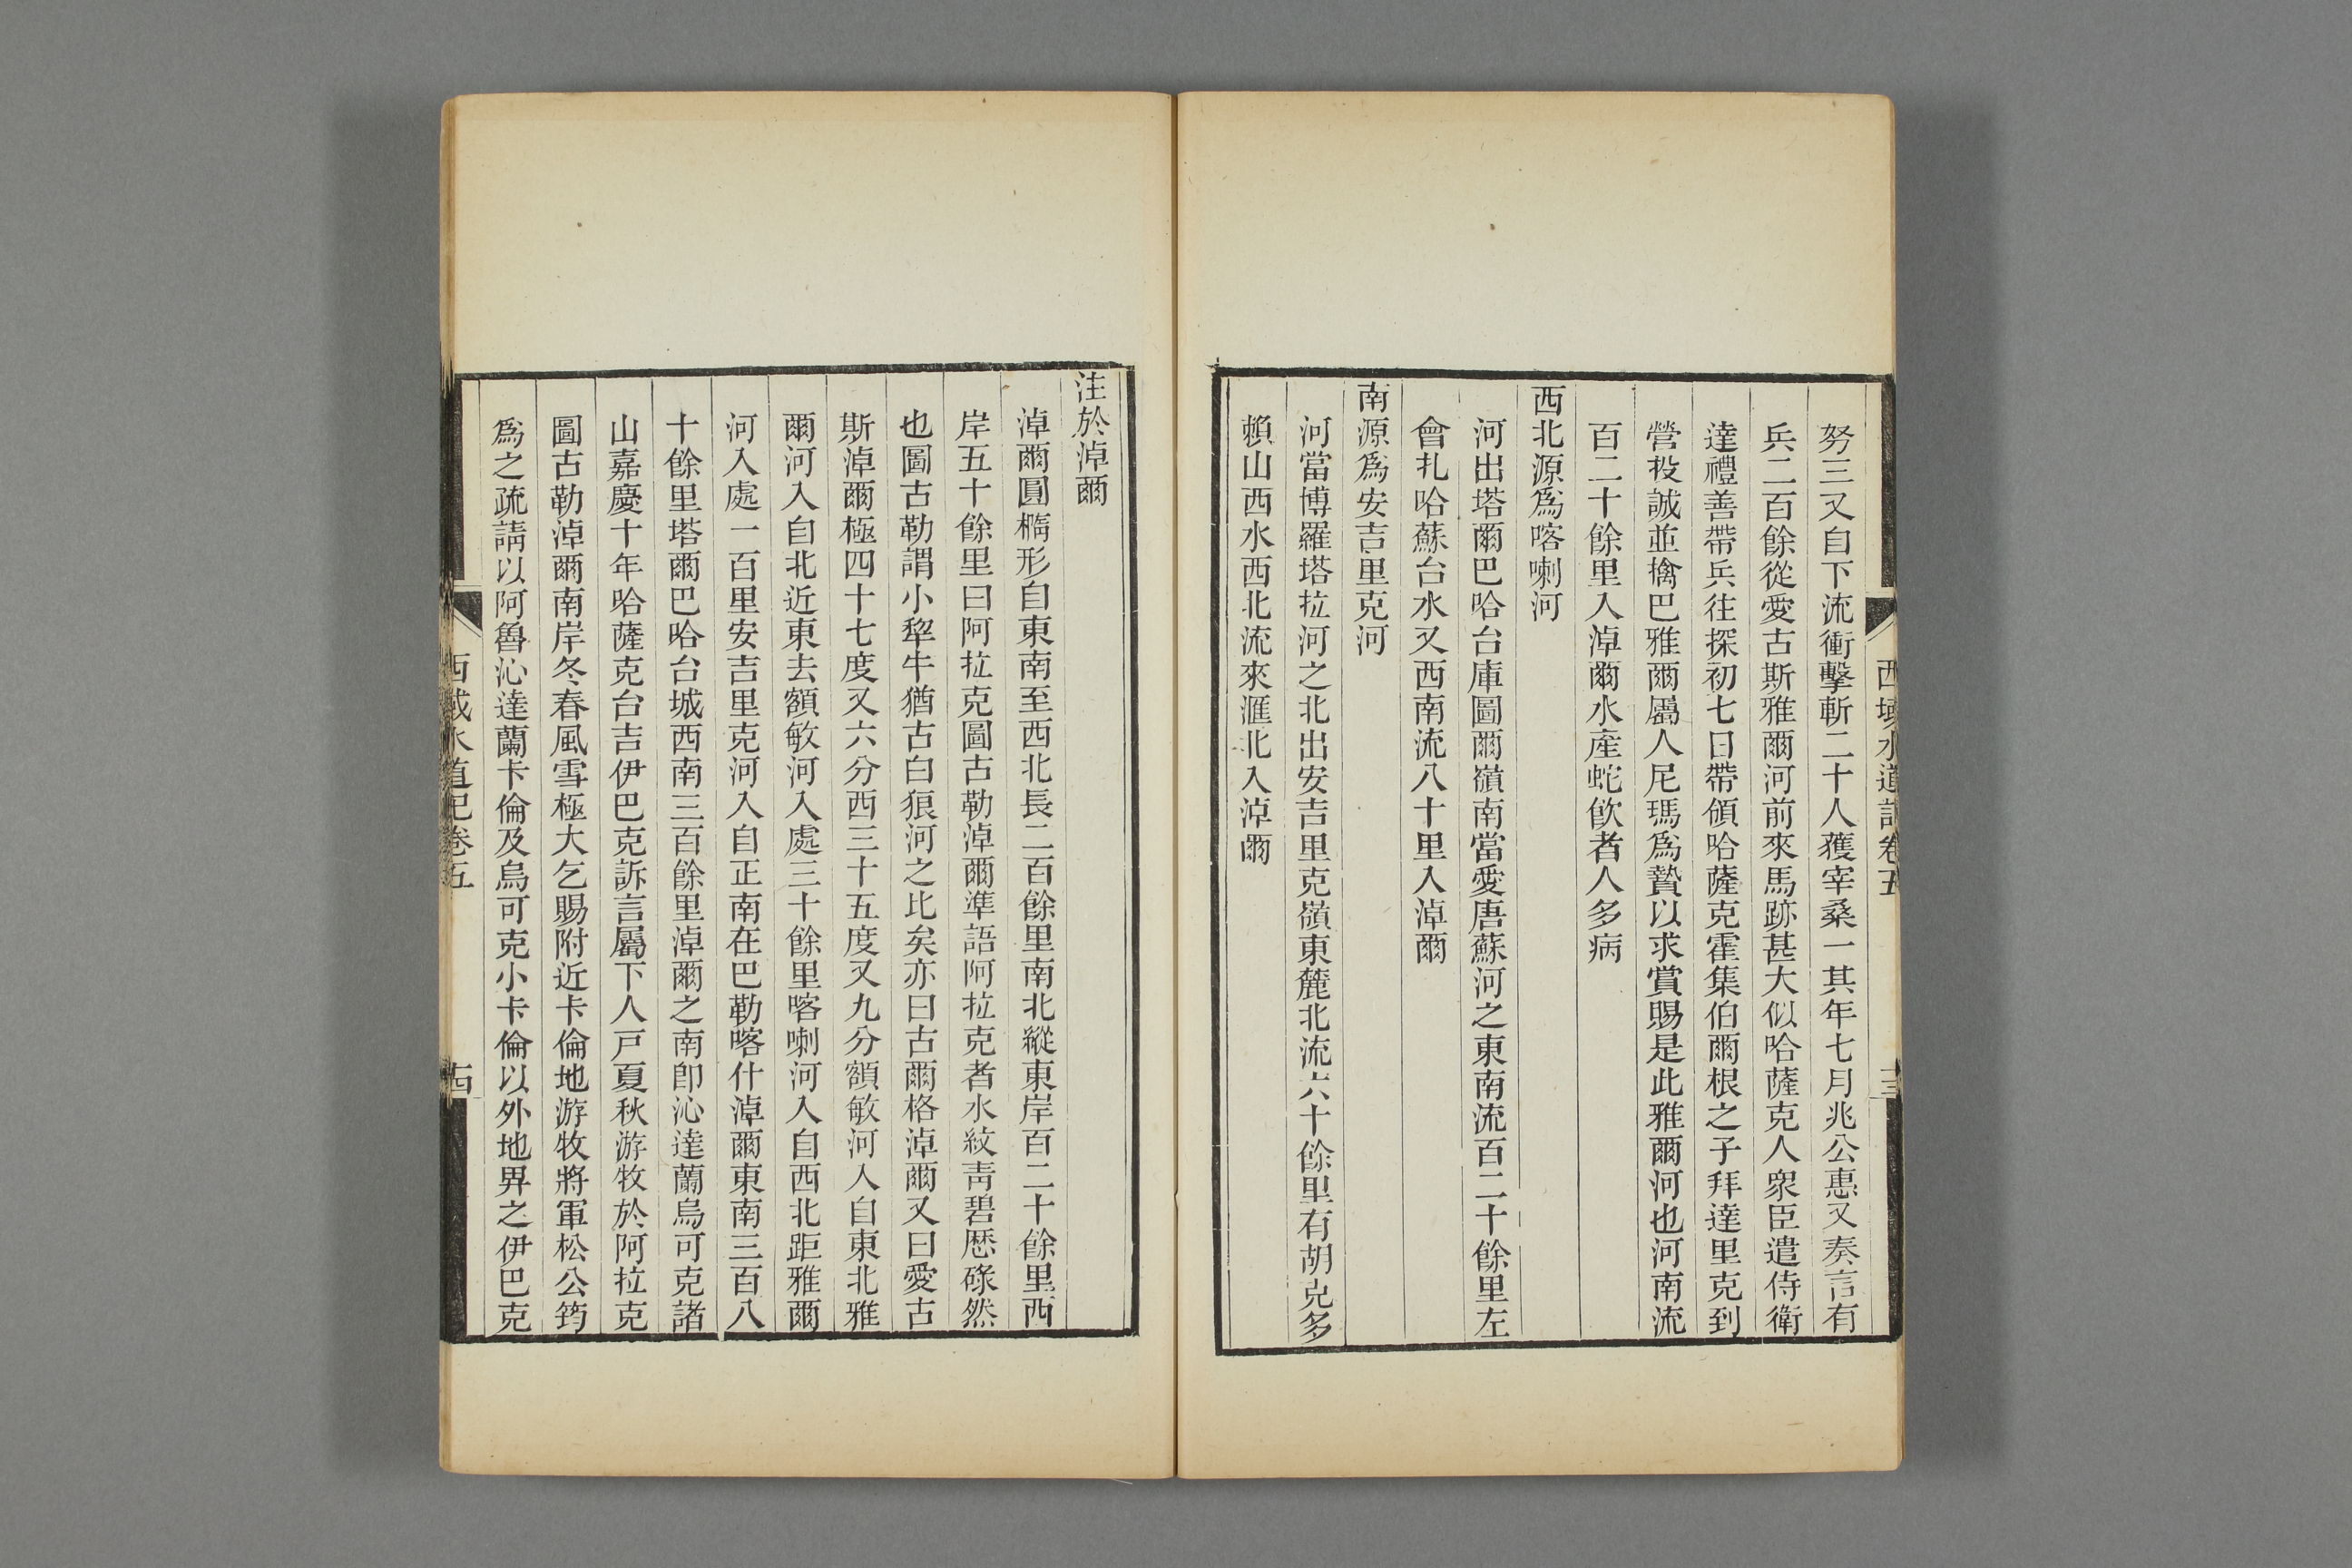 努三又自下流衝擊斬二十人獲宰桑一其年七月兆公惠又奏言有
兵二百餘從愛古斯雅爾河前來馬跡甚大似哈薩克人衆臣遣侍衛
達禮善帶兵往探初七日帶領哈薩克霍集伯爾根之子拜達里克到
營投誠並擒巴雅爾屬人尼瑪爲贄以求賞賜是此雅爾河也河南流
百二十餘里入淖爾水產蛇飲者人多病
西北源爲喀喇河
河出塔爾巴哈台庫圖爾嶺南當愛唐蘇河之東南流百二十餘里左
會扎哈蘇台水又西南流八十里入淖爾
南源爲安吉里克河
河當博羅塔拉河之北出安吉里克嶺東麓北流六十餘里有胡克多
賴山西水西北流來滙北入淖爾
西域水道記卷五
十三
注於淖爾
淖爾圓橢形自東南至西北長二百餘里南北縱東岸百二十餘里西
岸五十餘里曰阿拉克圖古勒淖爾準語阿拉克者水紋靑碧歷碌然
也圖古勒謂小犂牛猶古白狼河之比矣亦曰古爾格淖爾又曰愛古
斯淖爾極四十七度又六分西三十五度又九分額敏河入自東北雅
爾河入自北近東去額敏河入處三十餘里喀喇河入自西北距雅爾
河入處一百里安吉里克河入自正南在巴勒喀什淖爾東南三百八
十餘里塔爾巴哈台城西南三百餘里淖爾之南卽沁達蘭烏可克諸
山嘉慶十年哈薩克台吉伊巴克訴言屬下人戶夏秋游牧於阿拉克
圖古勒淖爾南岸冬春風雪極大乞賜附近卡倫地游牧將軍松公筠
爲之疏請以阿魯沁達蘭卡倫及烏可克小卡倫以外地畀之伊巴克
西域水道記卷五
十四